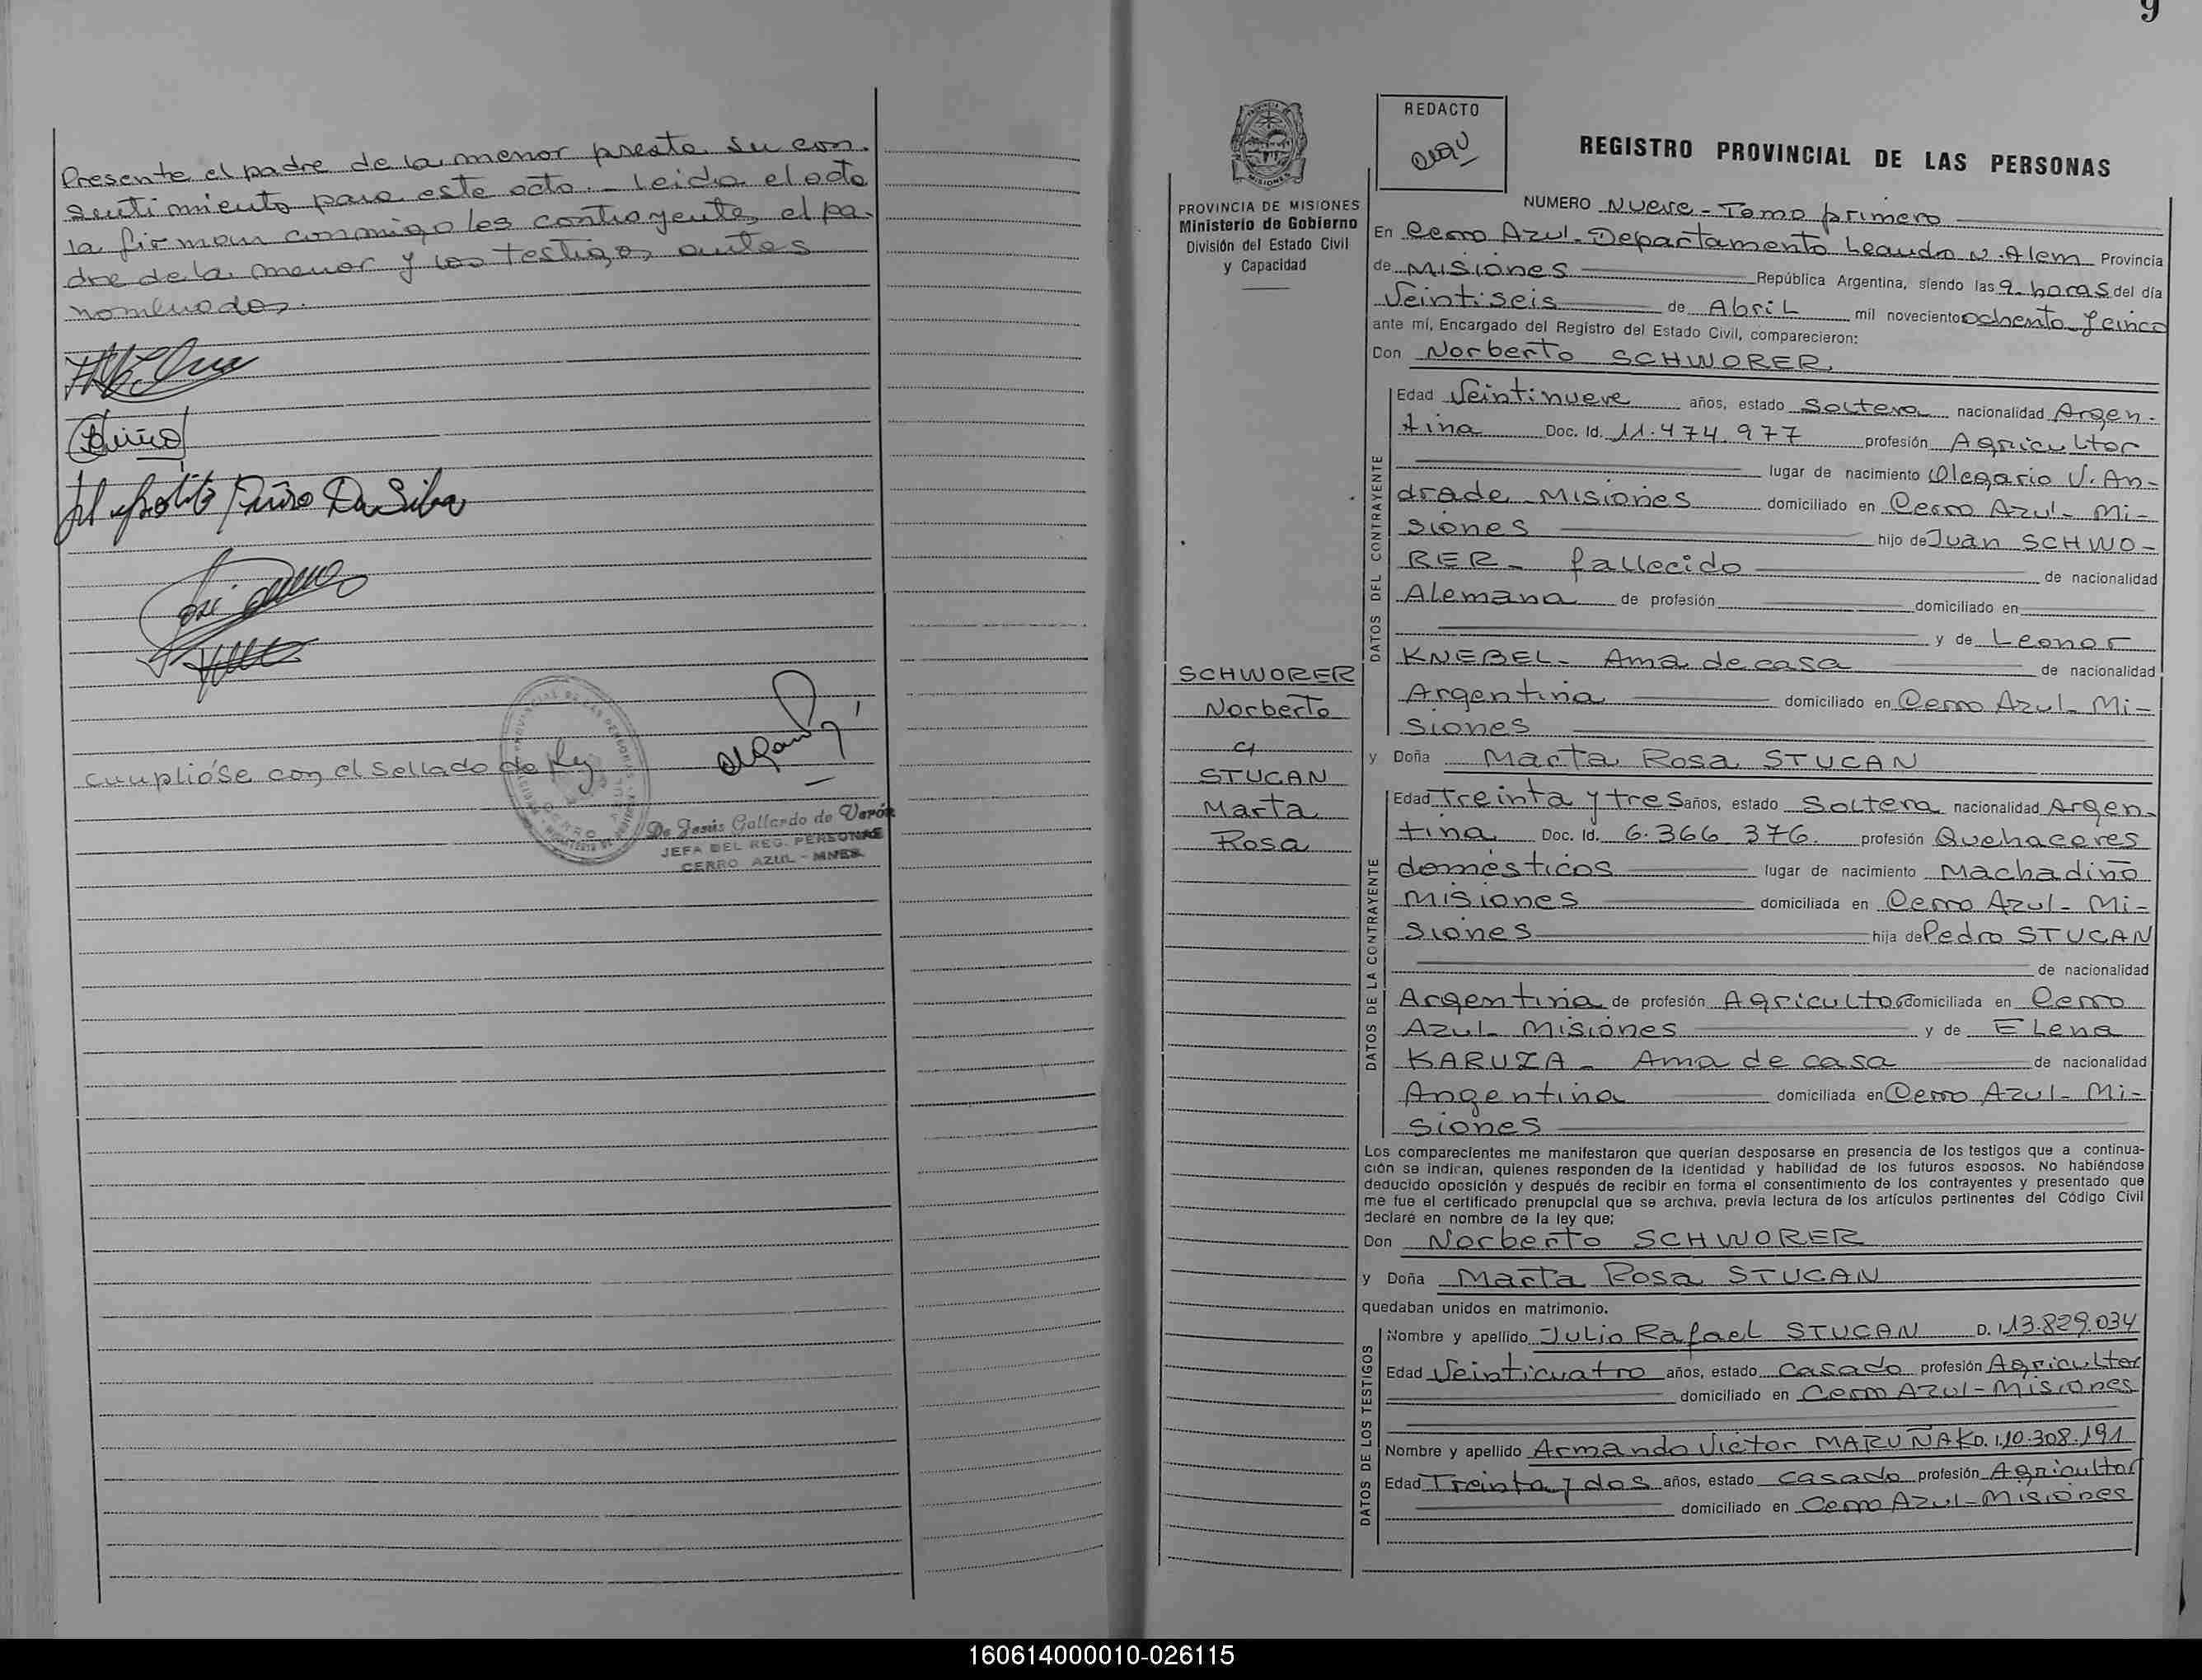 Presente el padre de la menor presta su con-
sentimiento para este acto.- Leida el acta
la firman conmigo los contrayentes, el pa-
dre de la menor y los testigos antes
nombrados.
Hipolito Da Silva
cumplióse con el sellado de ley
De Jesús Gallardo de Verón
JEFA DEL REG. PERSONAS
CERRO AZUL - MNES.
9
REDACTO
REGISTRO PROVINCIAL DE LAS PERSONAS
PROVINCIA DE MISIONES
Ministerio de Gobierno
División del Estado Civil
y Capacidad
SCHWORER
Norberto
c/
STUCAN
Marta
Rosa
NUMERO Nueve - Tomo primero
En Cerro Azul - Departamento Leandro N. Alem Provincia
de Misiones República Argentina, siendo las 9 horas del día
Veintiseis de Abril mil novecientos ochenta y cinco
ante mí, Encargado del Registro del Estado Civil, comparecieron:
Don Norberto SCHWORER
DATOS DEL CONTRAYENTE
Edad Veintinueve años, estado Soltero nacionalidad Argen-
tina Doc. Id. 11.474.977 profesión Agricultor
lugar de nacimiento Olegario V. An-
drade - Misiones domiciliado en Cerro Azul - Mi-
siones hijo de Juan SCHWO-
RER - fallecido de nacionalidad
Alemana de profesión domiciliado en
y de Leonor
KNEBEL - Ama de casa de nacionalidad
Argentina domiciliado en Cerro Azul - Mi-
siones
y Doña Marta Rosa STUCAN
DATOS DE LA CONTRAYENTE
Edad Treinta y tres años, estado Soltera nacionalidad Argen-
tina Doc. Id. 6.366.376. profesión Quehaceres
domésticos lugar de nacimiento Machadiño
Misiones domiciliada en Cerro Azul - Mi-
siones hija de Pedro STUCAN
de nacionalidad
Argentina de profesión Agricultor domiciliada en Cerro
Azul - Misiones y de Elena
KARUZA - Ama de casa de nacionalidad
Argentina domiciliada en Cerro Azul - Mi-
siones
Los comparecientes me manifestaron que querían desposarse en presencia de los testigos que a continua-
ción se indican, quienes responden de la identidad y habilidad de los futuros esposos. No habiéndose
deducido oposición y después de recibir en forma el consentimiento de los contrayentes y presentado que
me fue el certificado prenupcial que se archiva, previa lectura de los artículos pertinentes del Código Civil
declaré en nombre de la ley que;
Don Norberto SCHWORER
y Doña Marta Rosa STUCAN
quedaban unidos en matrimonio.
DATOS DE LOS TESTIGOS
Nombre y apellido Julio Rafael STUCAN D.I 13.829.034
Edad Veinticuatro años, estado casado profesión Agricultor
domiciliado en Cerro Azul - Misiones
Nombre y apellido Armando Victor MARUÑAK D.I.10.308.191
Edad Treinta y dos años, estado casado profesión Agricultor
domiciliado en Cerro Azul - Misiones
160614000010-026115